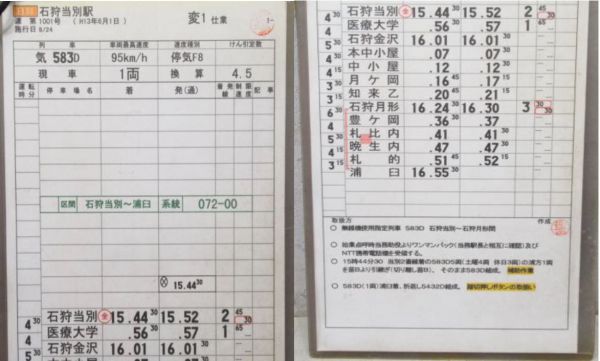 石狩当別駅
変1 仕業
第 1001号 (H13年6月1日)
施行日 8/24
列車 車両最高速度 速度種別 けん引定数
気 583D 95km/h 停気F8
現車 1両 換算 4.5
運転時分 停車場名 着 発(通) 着発線 制限速度 記事
区間 石狩当別~浦臼 系統 072-00
15.44 30
4 30 石狩当別 15.44 30 15.52 2 45 30
4 30 医療大学 .56 .57 1 65
4 30 石狩金沢 16.01 16.01
本中小屋 .07 .07
石狩当別 15.44 30 15.52 2 45 30
4 30 医療大学 .56 .57 1 65
石狩金沢 16.01 16.01
本中小屋 .07 .07
中小屋 .12 .12
月ケ岡 .16 45 .17 15
知来乙 .20 45 .21 15
石狩月形 16.24 30 16.30 3 30 30
豊ケ岡 .36 30 .37
札比内 .41 30 .41 30
晩生内 .47 .47 30
札的 .51 45 .52 15
浦臼 16.55 30
取扱方 作成
○ 無線機使用指定列車 583D 石狩当別~石狩月形間
○ 始業点呼時当務助役よりワンマンパック(当務駅長と相互に確認)及び
NTT携帯電話機を受領する。
○ 15時44分30 当別2番線着の583D5両(土曜4両 休日3両)の浦方1両
そのまま583D組成。 補助作業
○ 583D(1両)浦臼着、折返し5432D組成。 踏切押しボタンの取扱い